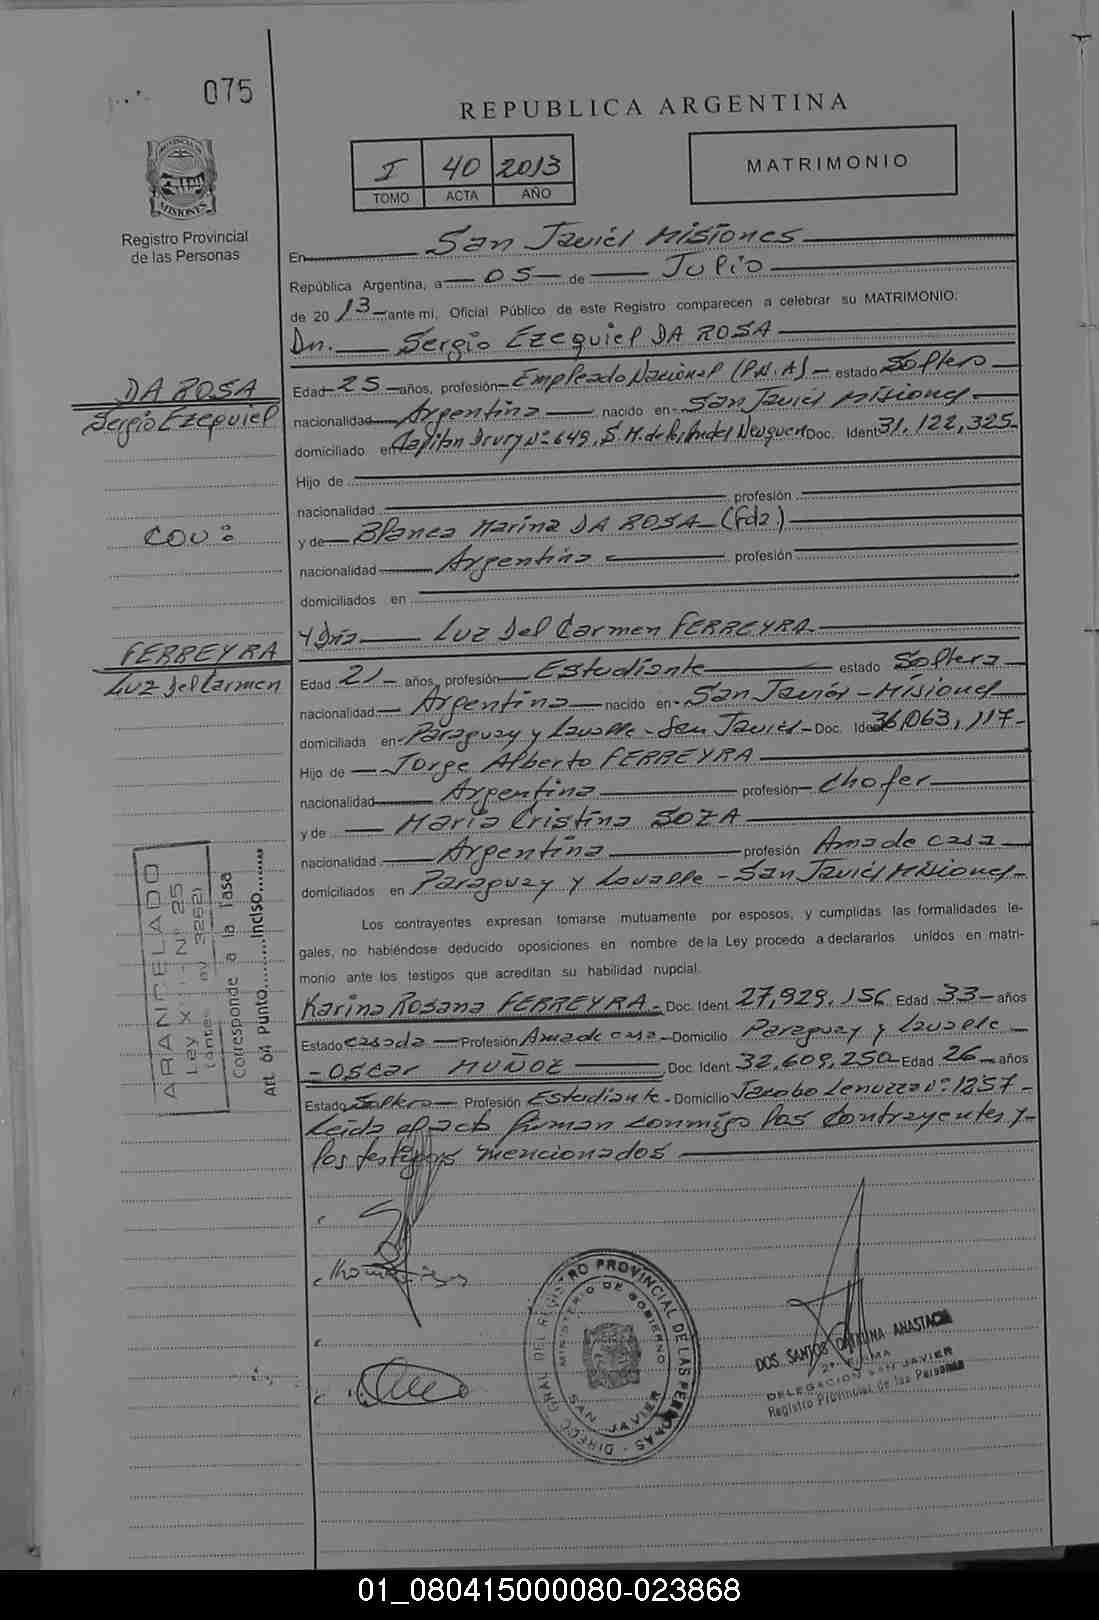 075
REPUBLICA ARGENTINA
I 40 2013
TOMO ACTA AÑO
MATRIMONIO
PROVINCIA DE
MISIONES
Registro Provincial
de las Personas
En San Javier Misiones
República Argentina, a 05 de Julio
de 2013 ante mí, Oficial Público de este Registro comparecen a celebrar su MATRIMONIO:
Dn. Sergio Ezequiel DA ROSA
DA ROSA
Sergio Ezequiel
Edad 25 años, profesión Empleado Nacional (P.N.A) estado Soltero
nacionalidad Argentina nacido en San Javier Misiones
domiciliado en Capitan Drury Nº 649, S. M. de los Andes Neuquen Doc. Ident 31,122,325
Hijo de
nacionalidad profesión
CON:
y de Blanca Marina DA ROSA (fda)
nacionalidad Argentina profesión
domiciliados en
Y Dña Luz Del Carmen FERREYRA
FERREYRA
Luz Del Carmen
Edad 21 años, profesión Estudiante estado Soltera
nacionalidad Argentina nacido en San Javier - Misiones
domiciliada en Paraguay y Lavalle - San Javier - Doc. Ident 36,063,117
Hijo de Jorge Alberto FERREYRA
nacionalidad Argentina profesión Chofer
y de Maria Cristina SOZA
nacionalidad Argentina profesión Ama de casa
domiciliados en Paraguay y Lavalle - San Javier Misiones
Los contrayentes expresan tomarse mutuamente por esposos, y cumplidas las formalidades le-
gales, no habiéndose deducido oposiciones en nombre de la Ley procedo a declararlos unidos en matri-
monio ante los testigos que acreditan su habilidad nupcial.
Karina Rosana FERREYRA Doc. Ident. 27,929,156 Edad 33 años
Estado casada Profesión Ama de casa Domicilio Paraguay y Lavalle
Oscar MUÑOZ Doc. Ident. 32,609,250 Edad 26 años
Estado Soltero Profesión Estudiante Domicilio Jacobo Nº: 1257
Leida el acta firman conmigo los contrayentes y
los testigos mencionados
ARANCELADO
Ley X Nº 25
Corresponde a la Tasa
Art. 64 Punto Inciso
DIRECC. GRAL. DEL REGISTRO PROVINCIAL DE LAS PERSONAS
MINISTERIO DE GOBIERNO
SAN JAVIER
DOS SANTOS ANASTACIA
DELEGACION SAN JAVIER
Registro Provincial de las Personas
01_080415000080-023868